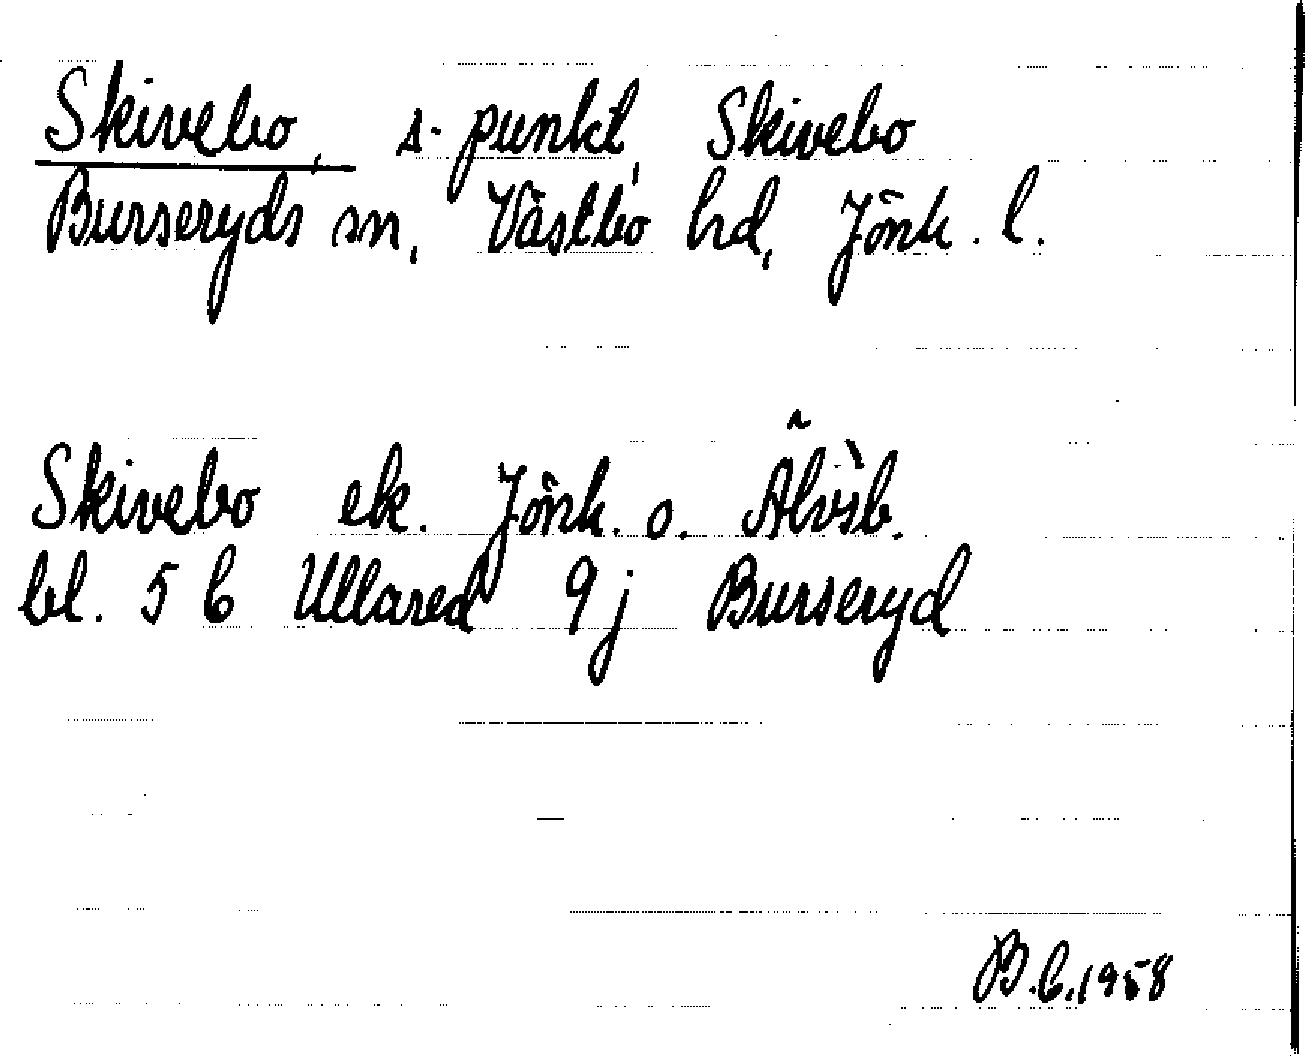 Skivebo, s-punkt, Skivebo
Burseryds sn, Västbo hd, Jönk. l.
Skivebo ek. Jönk. o. Älvsb.
bl. 5 C Ullared 9j Burseryd
1958